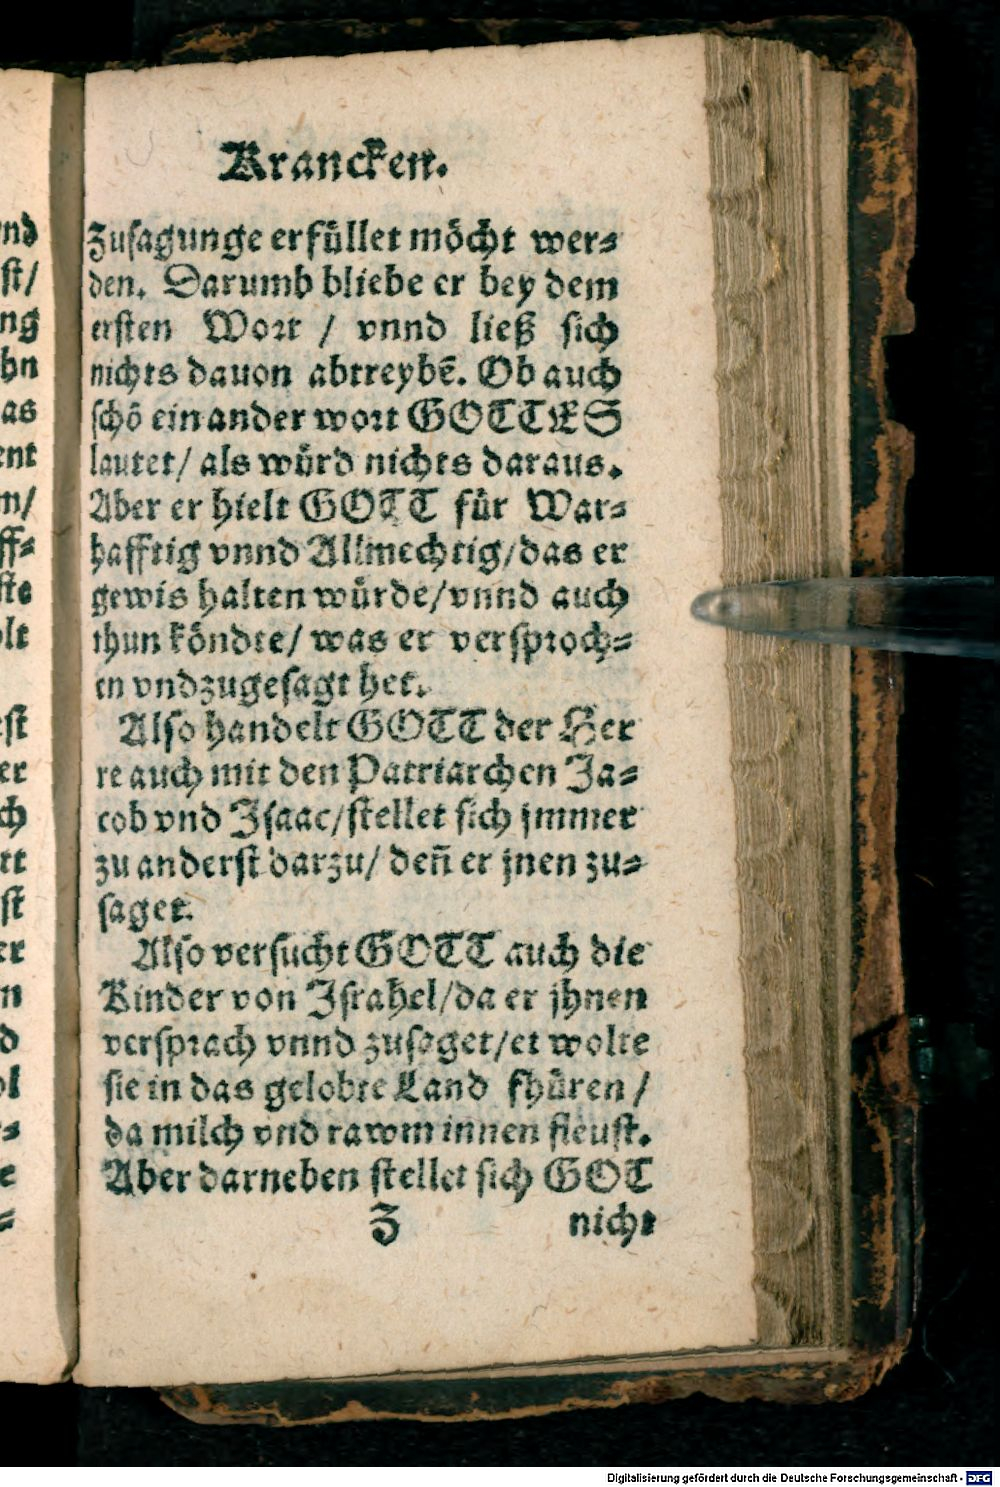 Krancken.
Zusagunge erfüllet möcht wer⸗
den. Darumb bliebe er bey dem
ersten Wort / vnnd ließ sich
nichts dauon abtreybē. Ob auch
schō ein ander wort GOTTES
lautet/ als würd nichts daraus.
Aber er hielt GOTT für War⸗
hafftig vnnd Allmechtig/das er
gewis halten würde/vnnd auch
thun köndte/ was er versproch⸗
en vnd zugesagt het.
Also handelt GOTT der Her
re auch mit den Patriarchen Ja⸗
cob vnd Isaac/stellet sich jmmer
zu anderst darzu/ deñ er jnen zu⸗
saget.
Also versucht GOTT auch die
Kinder von Israhel/da er jhnen
versprach vnnd zusaget/et wolte
sie in das gelobte Land fhüren /
da milch vnd rawm innen fleust.
Aber darneben stellet sich GOT
Z nicht
nd
st/
ng
hn
as
ent
m/
ff⸗
ste
olt
est
er
ch
rt
st
er
n
d
ol
r⸗
e
⸗
Digitalisierung gefördert durch die Deutsche Forschungsgemeinschaft - DFG